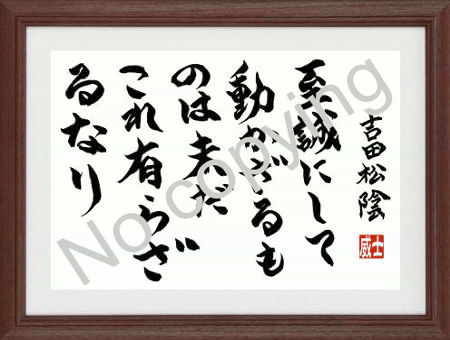 吉田松陰
至誠にして
動かざるも
のは未だ
これ有らざ
るなり
威士
No copying